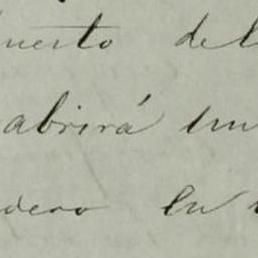 puesto del
abrirá un
dero en